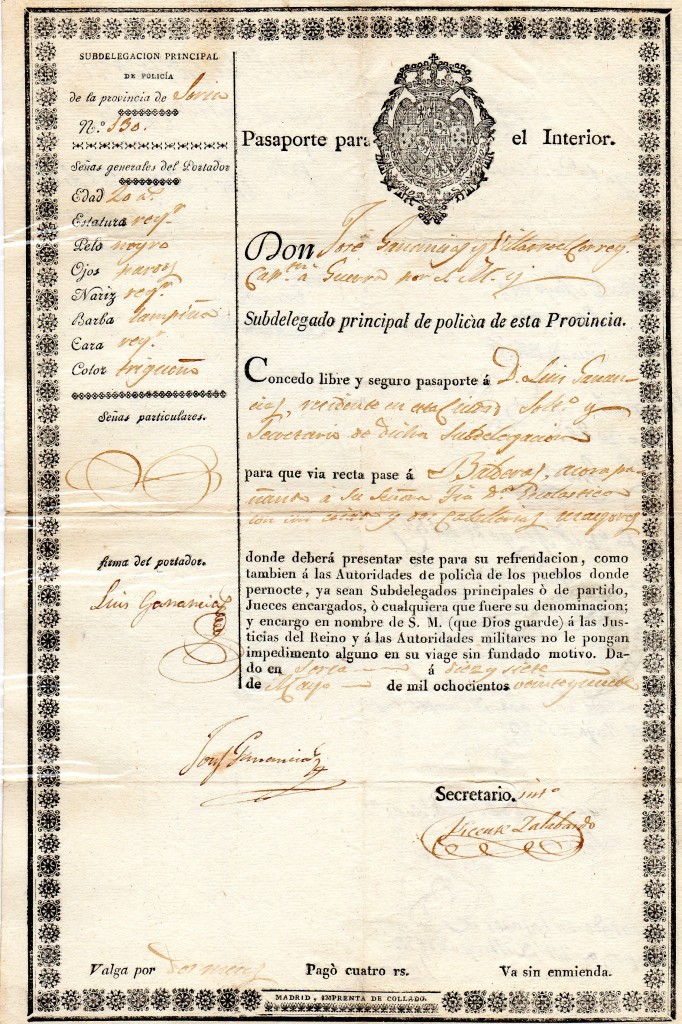 SUBDELEGACION PRINCIPAL
DE POLICÍA
de la provincia de Soria
N.º 130.
Señas generales del Portador
Edad 20 a.s
Estatura reg.r
Pelo negro
Ojos pardos
Nariz reg.r
Barba lampiña
Cara reg.r
Color trigueño
Señas particulares.
firma del portador.
Luis Ganancias
Pasaporte para el Interior.
Don José Ganancias y Villarroel Correg.r
Cap.n á Guerra por S. M. y
Subdelegado principal de policìa de esta Provincia.
Concedo libre y seguro pasaporte á D. Luis Ganan-
cias, residente en esta Ciudad Solt.o y
Secretario de dicha Subdelegacion
para que via recta pase á acompa-
ñando a su Señora Tia D.a Escolastica
con un y dos Caballerias mayores
donde deberá presentar este para su refrendacion, como
tambien á las Autoridades de policìa de los pueblos donde
pernocte, ya sean Subdelegados principales ò de partido,
Jueces encargados, ò cualquiera que fuere su denominacion;
y encargo en nombre de S. M. (que Dios guarde) á las Jus-
ticias del Reino y á las Autoridades militares no le pongan
impedimento alguno en su viage sin fundado motivo. Da-
do en Soria á diez y siete
de Mayo de mil ochocientos veinte y nueve
José Ganancias
Secretario. int.o
Vicente Zalabardo
Valga por dos meses Pagò cuatro rs. Va sin enmienda.
MADRID, IMPRENTA DE COLLADO.